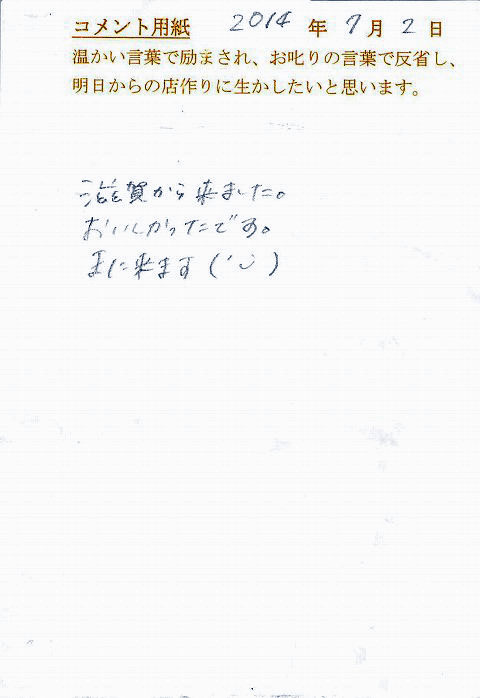 コメント用紙 2014年7月2日
温かい言葉で励まされ、お叱りの言葉で反省し、
明日からの店作りに生かしたいと思います。
滋賀から来ました。
おいしかったです。
また来ます('◡')